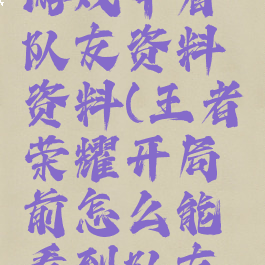 游戏中看
队友资料
资料(王者
荣耀开局
前怎么能
看到队友